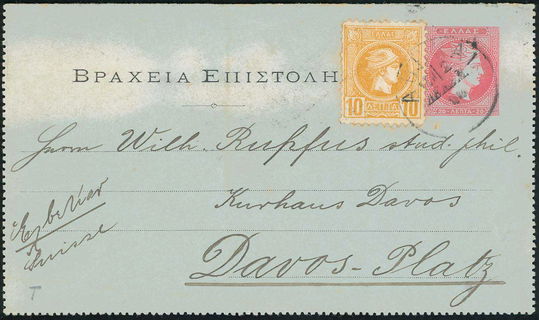 ΕΛΛΑΣ
ΕΛΛΑΣ
ΒΡΑΧΕΙΑ ΕΠΙΣΤΟΛΗ
10 ΛΕΠΤΑ 10
20 ΛΕΠΤΑ 20
Herrn Wilh. Ruppus stud. phil.
Kurhaus Davos
Davos-Platz
Ἑλβετίαν
Suisse
T